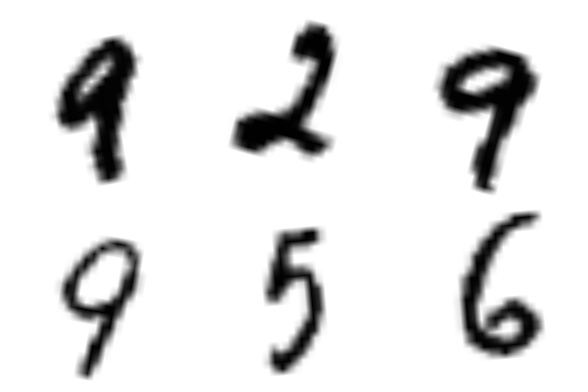 9 2 9
9 5 6